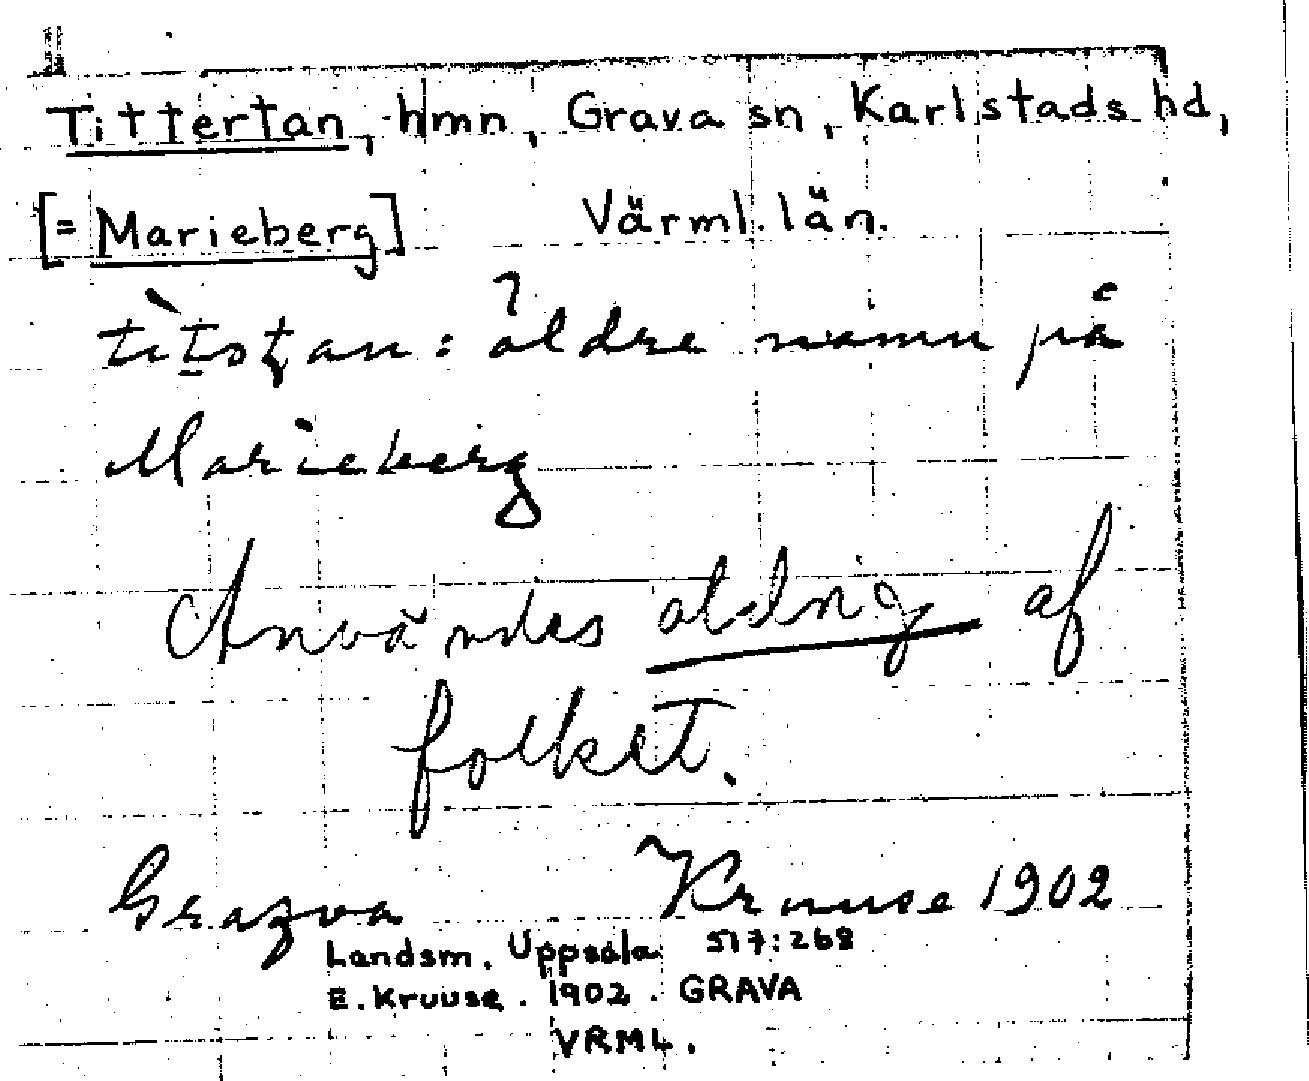 Tittertan, hmn, Grava sn, Karlstads hd,
[= Marieberg] Värml. län.
äldre namn på
Marieberg
Användes aldrig af
folket.
Grava Kruuse 1902
Landsm. Uppsala 517:268
E. Kruuse. 1902. GRAVA
VRML.